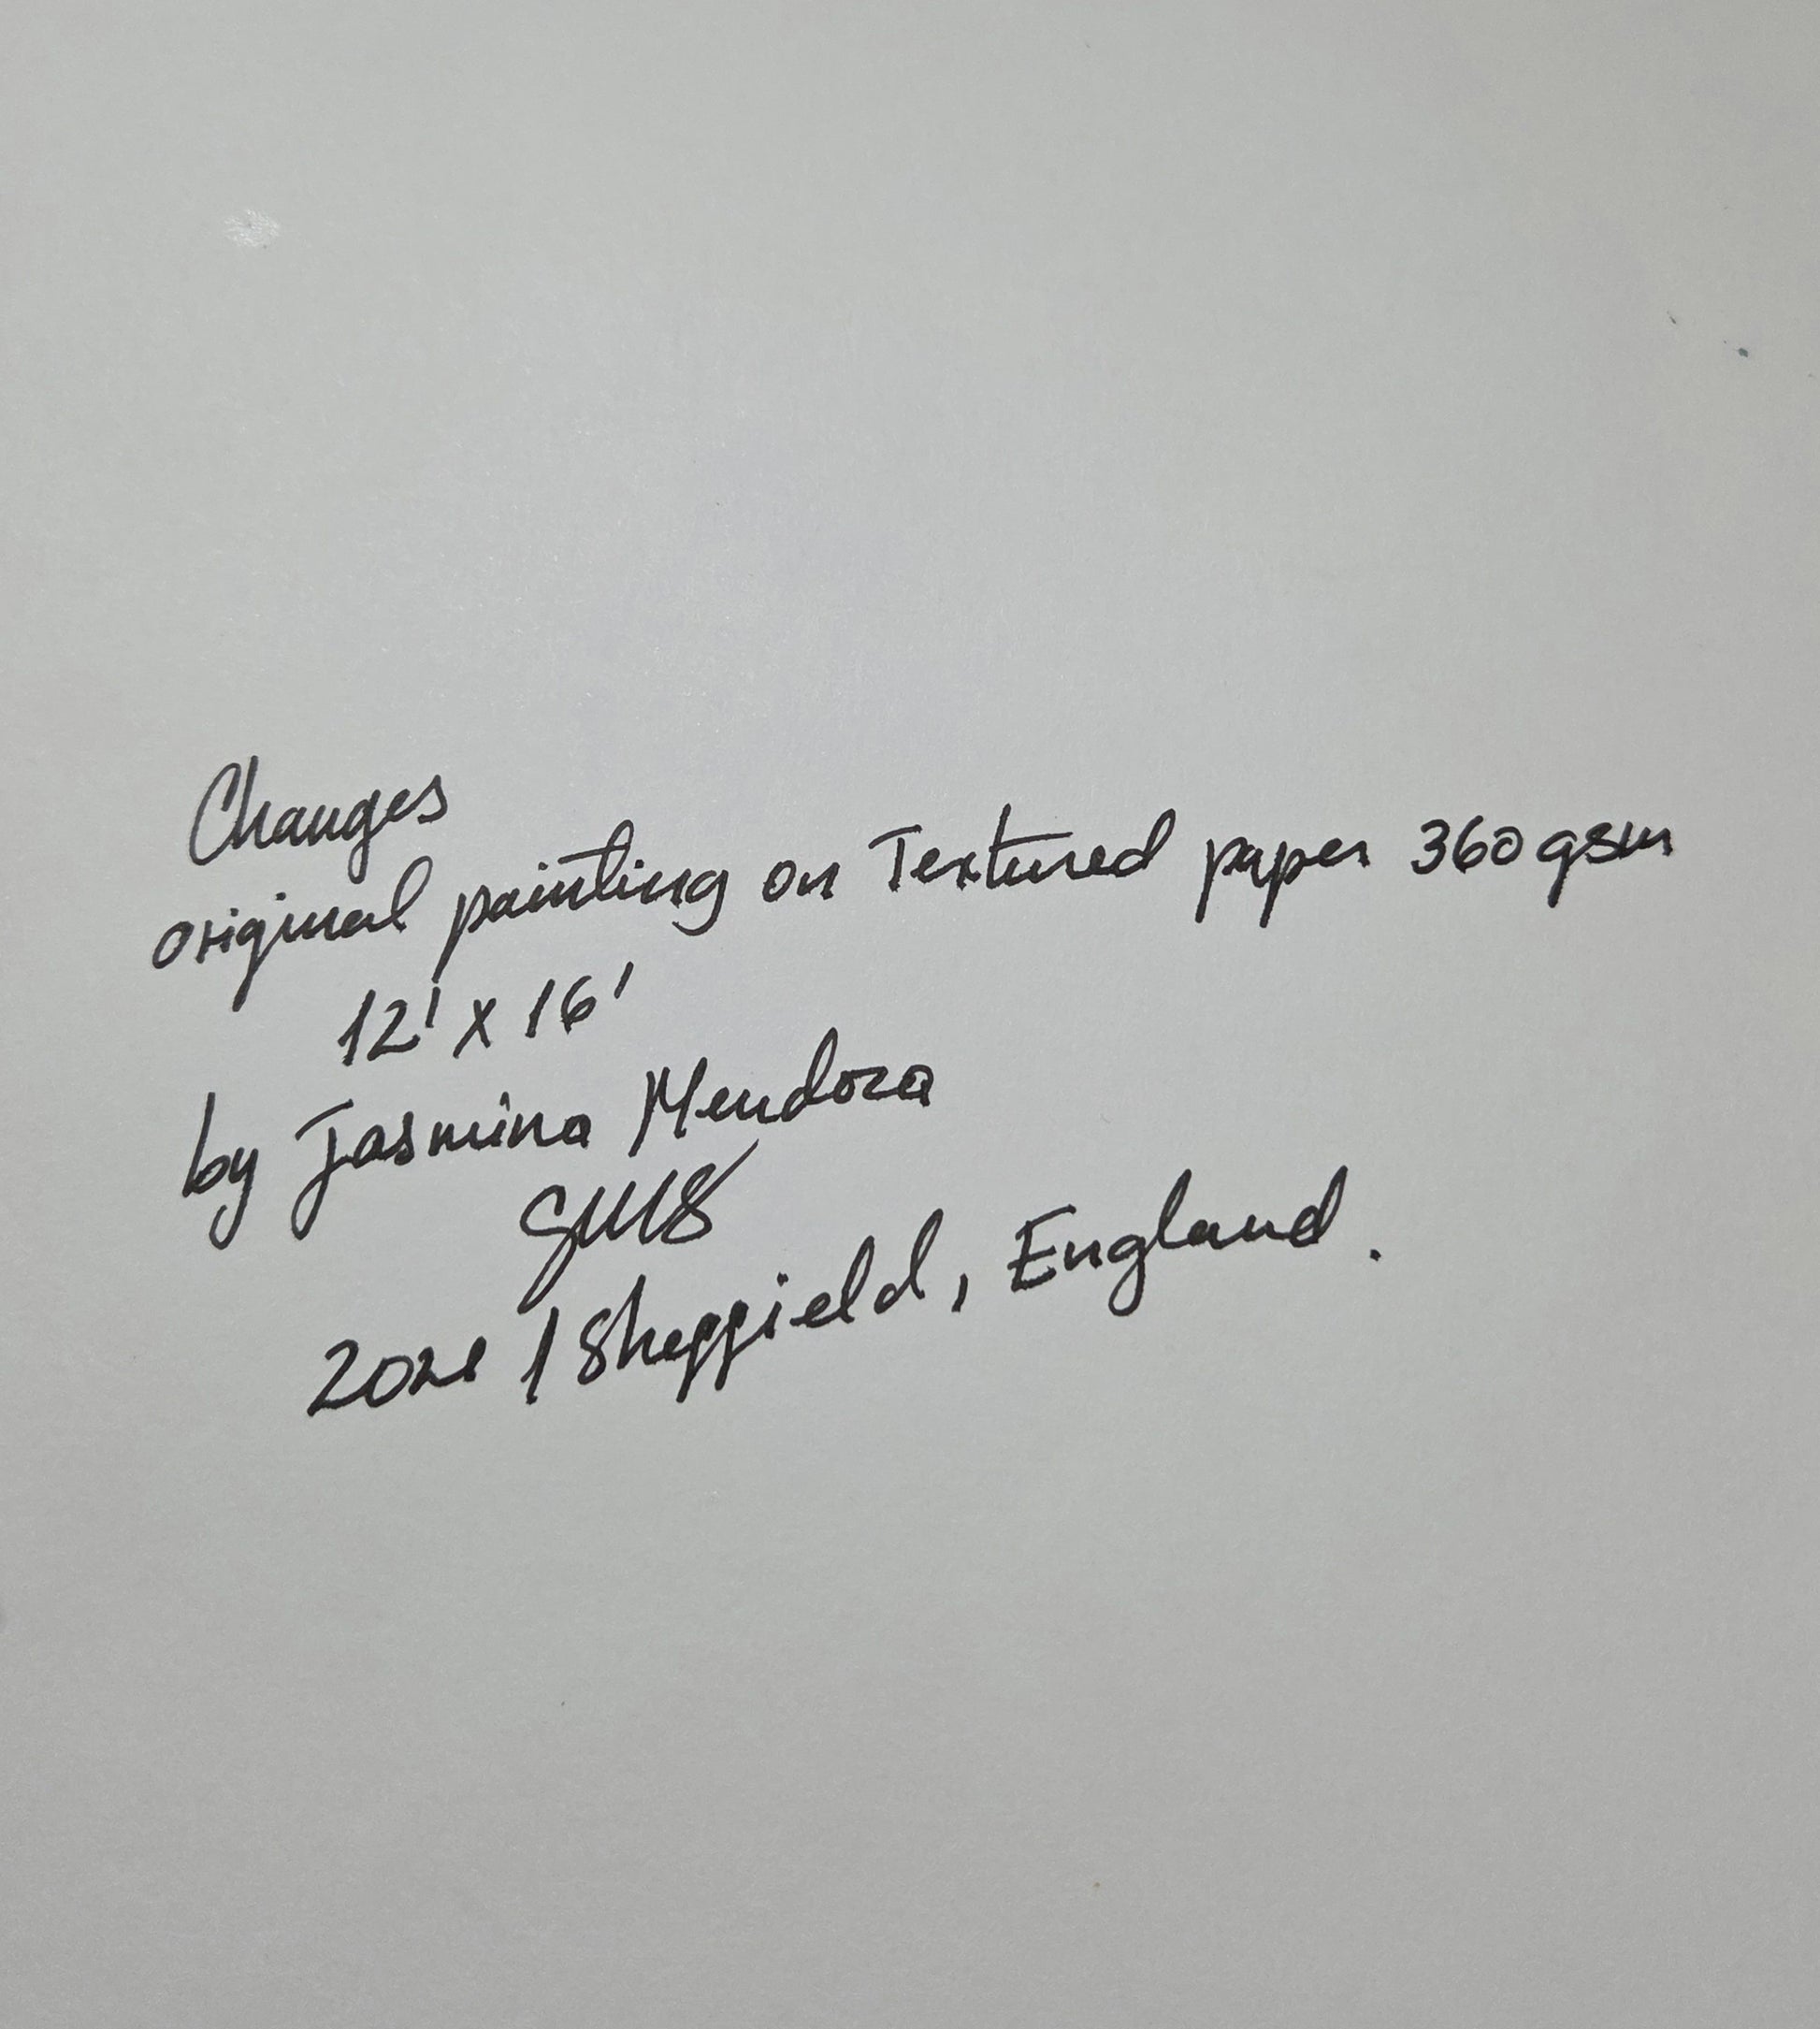 Changes
original painting on Textured paper 360 gsm
12' x 16'
by Jasmina Mendoza
/ Sheffield, England.